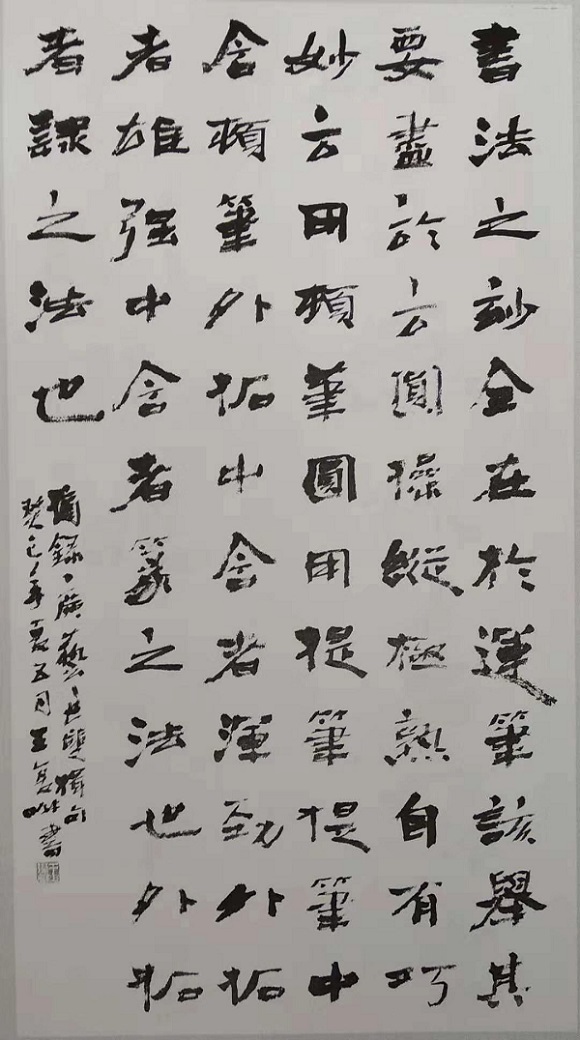 書法之妙全在於運筆該舉其
要盡於方圓操縱極熟自有巧
妙方用頓筆圓用提筆提筆中
含頓筆外拓中含者渾勁外拓
者雄强中含者篆之法也外拓
者隸之法也
摘錄廣藝舟雙楫句
癸巳年夏五月王書